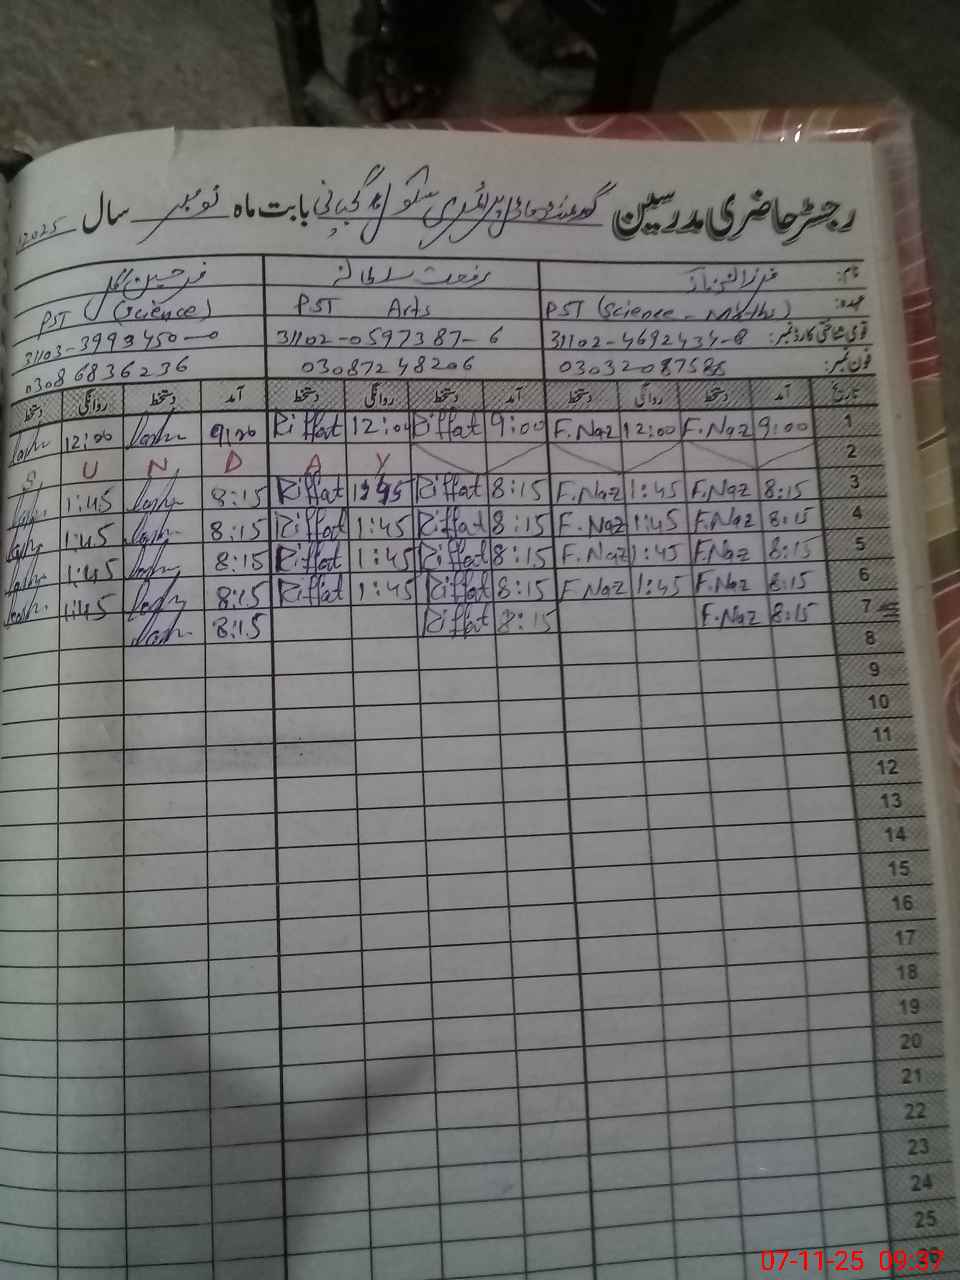 رجسٹر حاضری مدرسین گورنمنٹ پرائمری سکول بابت ماہ نومبر سال 2025
نام: فرزانہ ناز رفعت سلطانہ
عہدہ: PST (Science - Maths) PST Arts PST (Science)
قومی شناختی کارڈ نمبر: 31102-4692434-8 31102-0597387-6 31103-3993450-0
فون نمبر: 03032087588 03087248206 03086836236
تاریخ آمد دستخط روانگی دستخط آمد دستخط روانگی دستخط آمد دستخط روانگی دستخط
1 9:00 F.Naz 12:00 F.Naz 9:00 Riffat 12:00 Riffat 9:00 12:00
2 S U N D A Y
3 8:15 F.Naz 1:45 F.Naz 8:15 Riffat 1:45 Riffat 8:15 1:45
4 8:15 F.Naz 1:45 F.Naz 8:15 Riffat 1:45 Riffat 8:15 1:45
5 8:15 F.Naz 1:45 F.Naz 8:15 Riffat 1:45 Riffat 8:15 1:45
6 8:15 F.Naz 1:45 F.Naz 8:15 Riffat 1:45 Riffat 8:15 1:45
7 8:15 F.Naz 8:15 Riffat 8:15
8
9
10
11
12
13
14
15
16
17
18
19
20
21
22
23
24
25
07-11-25 09:37